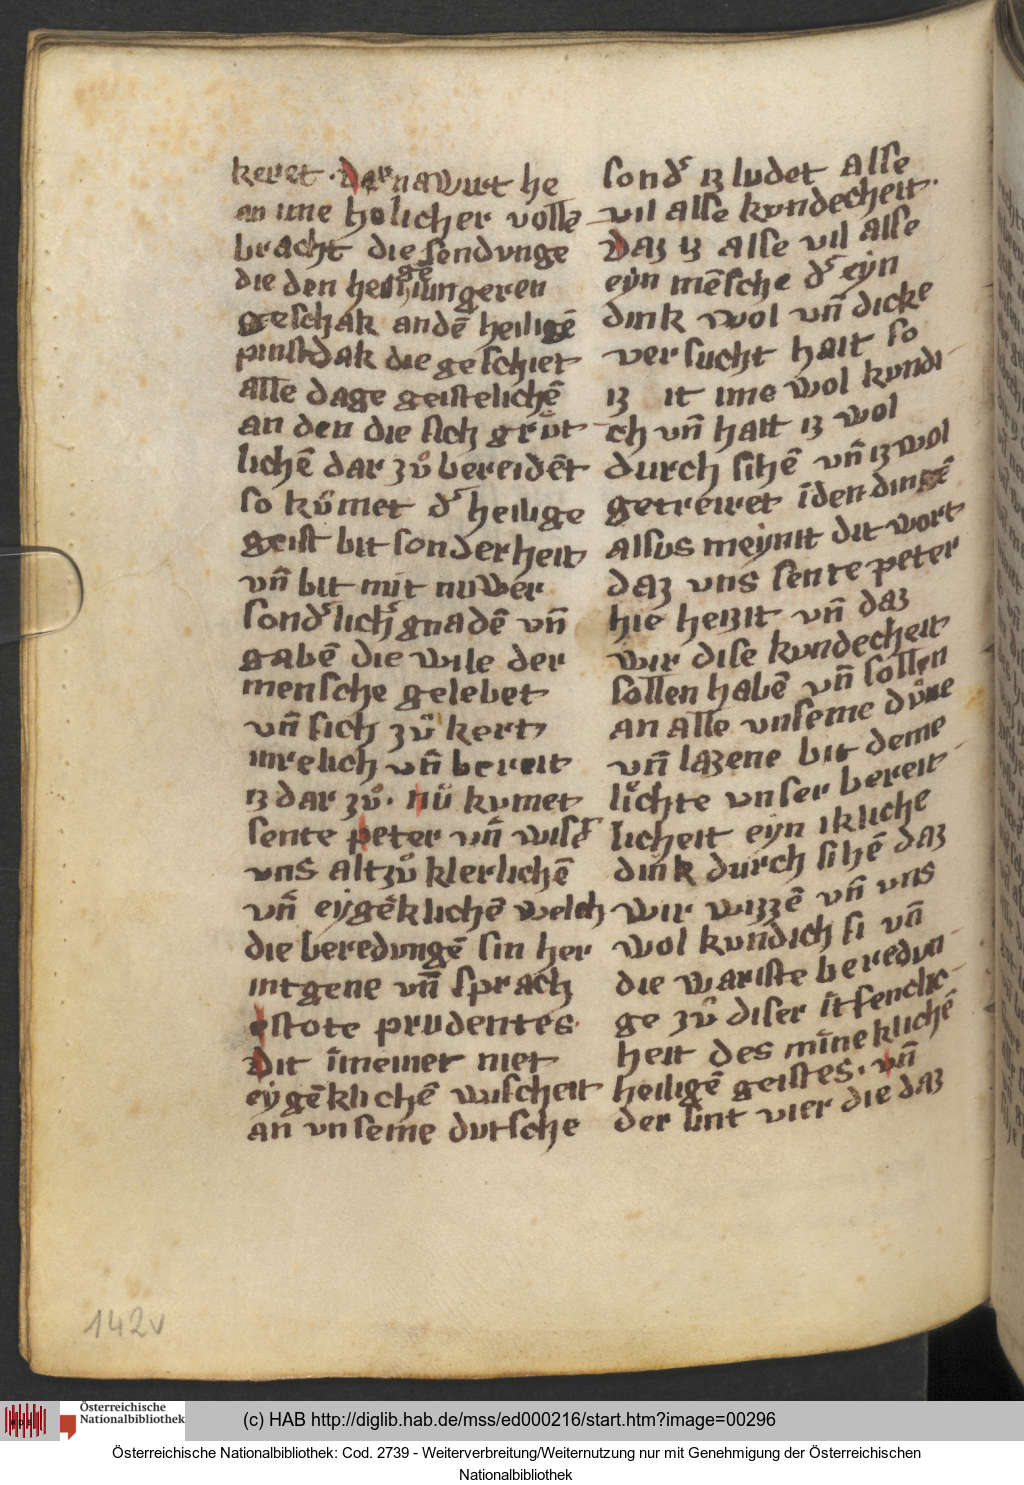 keret · Dar na wirt he
an ime holicher volle
bracht die sendvnge
die den heilige iungeren
geschak an dē heiligē
pinstdak die geschiet
alle dage geistelichē
an den die sich grůt
lichē dar zů bereidēt
so kůmet dʾ heilige
geist bit sonderheit
vn̄ bit mit nuwer
sondʾlichʾ gnadē vn̄
gabē die wile der
mensche gelebet
vn̄ sich zů kert
inrelich vn̄ bereit
iz dar zů · nů kvmet
sente peter vn̄ wisʾ
vns altzů klerlichē
vn̄ eygēklichē welch
die beredvngē sin her
intgene vn̄ sprach
estote prudentes ·
Dit īmeinet niet
eygēklichē wischeit
an vnseme dutsche
sondʾ iz ludet alse
vil alse kvndecheit ·
Daz iz alse vil alse
eyn mēsche dʾ eyn
dink wol vn̄ dicke
versucht hait so
iz it ime wol kvndi
ch vn̄ hait iz wol
durch sihē vn̄ iz wol
getreiret ī den dingē
alsus meynit dit wort
daz vns sente peter
hie heizit vn̄ daz
wir dise kvndecheit
sollen habē vn̄ sollen
an alle vnseme důne
vn̄ lazene bit deme
lichte vnser bereit
licheit eyn ikliche
dink durch sihē daz
wir wizzē vn̄ vns
wol kvndich si vn̄
die wariste beredvn
ge zů diser ītfenclic
heit des mīneklichē
heiligē geistes · vn̄
der sint vier die daz
142v
Österreichische
Nationalbibliothek
(c) HAB http://diglib.hab.de/mss/ed000216/start.htm?image=00296
Österreichische Nationalbibliothek: Cod. 2739 - Weiterverbreitung/Weiternutzung nur mit Genehmigung der Österreichischen
Nationalbibliothek